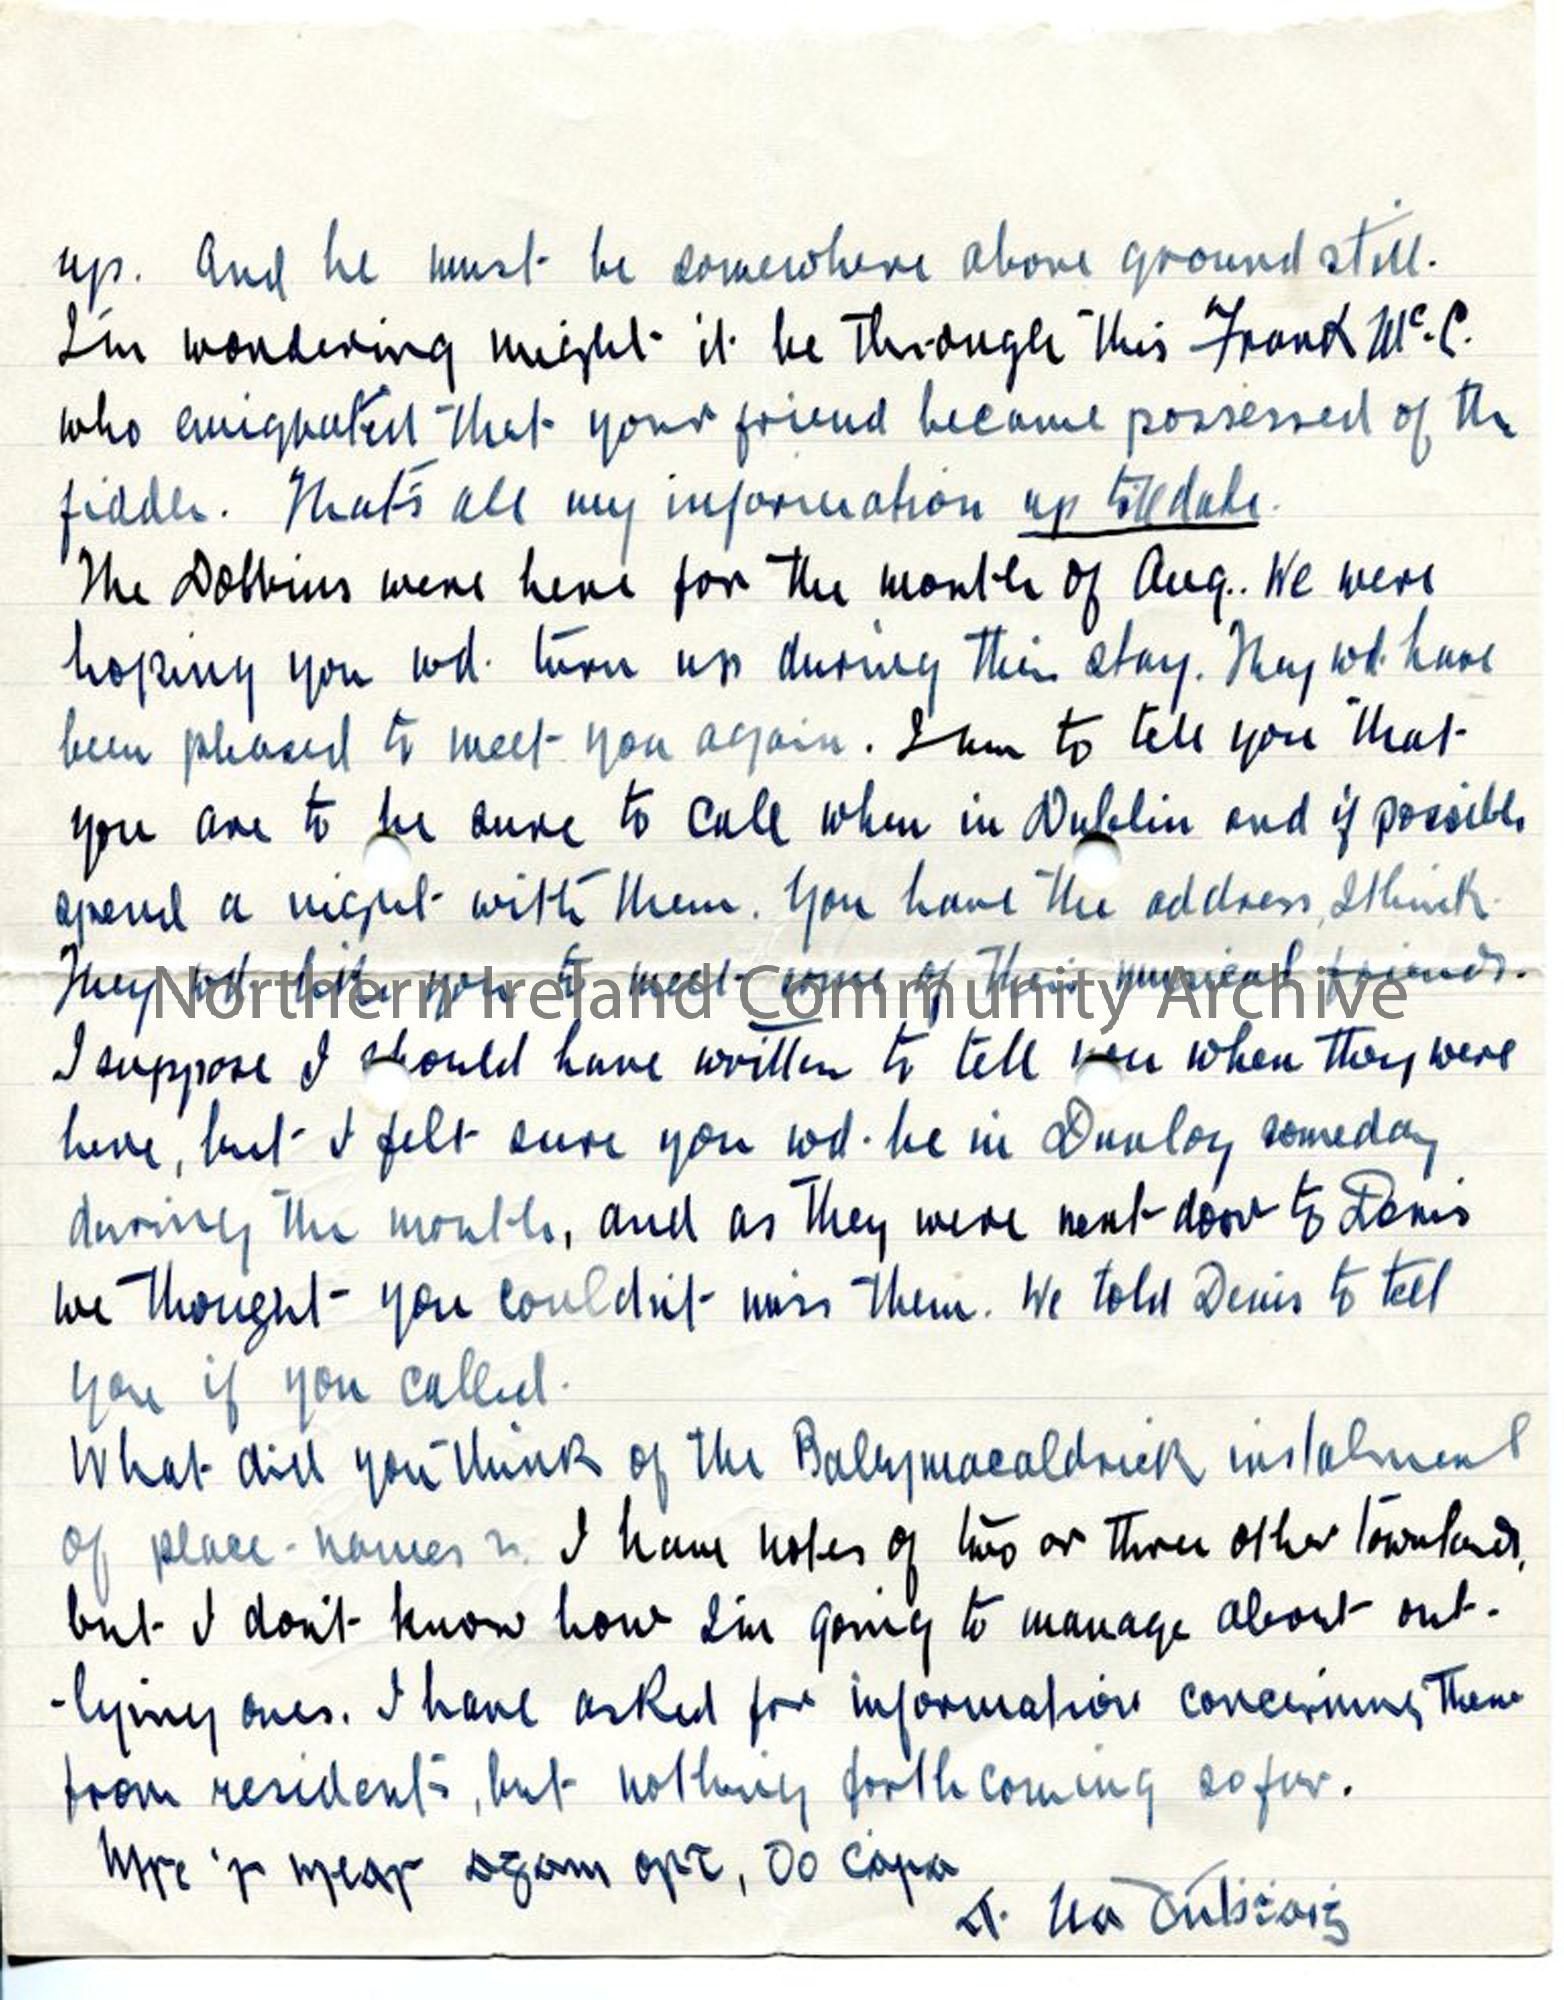 up. And he must be somewhere above ground still.
I'm wondering might it be through this Frank McC.
who emigrated that your friend became possessed of the
fiddle. That's all my information up till date.
The Dobbins were here for the month of Aug.. We were
hoping you wd. turn up during their stay. They wd. have
been pleased to meet you again. I am to tell you that
you are to be sure to call when in Dublin and if possible
spend a night with them. You have the address, I think.
They wd. like you to meet some of their musical friends.
Northern Ireland Community Archive
I suppose I should have written to tell you when they were
here, but I felt sure you wd. be in Dunloy someday
during the month, and as they were next door to Denis
we thought you couldn't miss them. We told Denis to tell
you if you called.
What did you think of the Ballymacaldrick instalment
of place-names ? I have notes of two or three other townlands,
but I don't know how I'm going to manage about out-
-lying ones. I have asked for information concerning them
from residents, but nothing forthcoming so far.
Mise le meas agam ort, Do Cara
Á. Ua